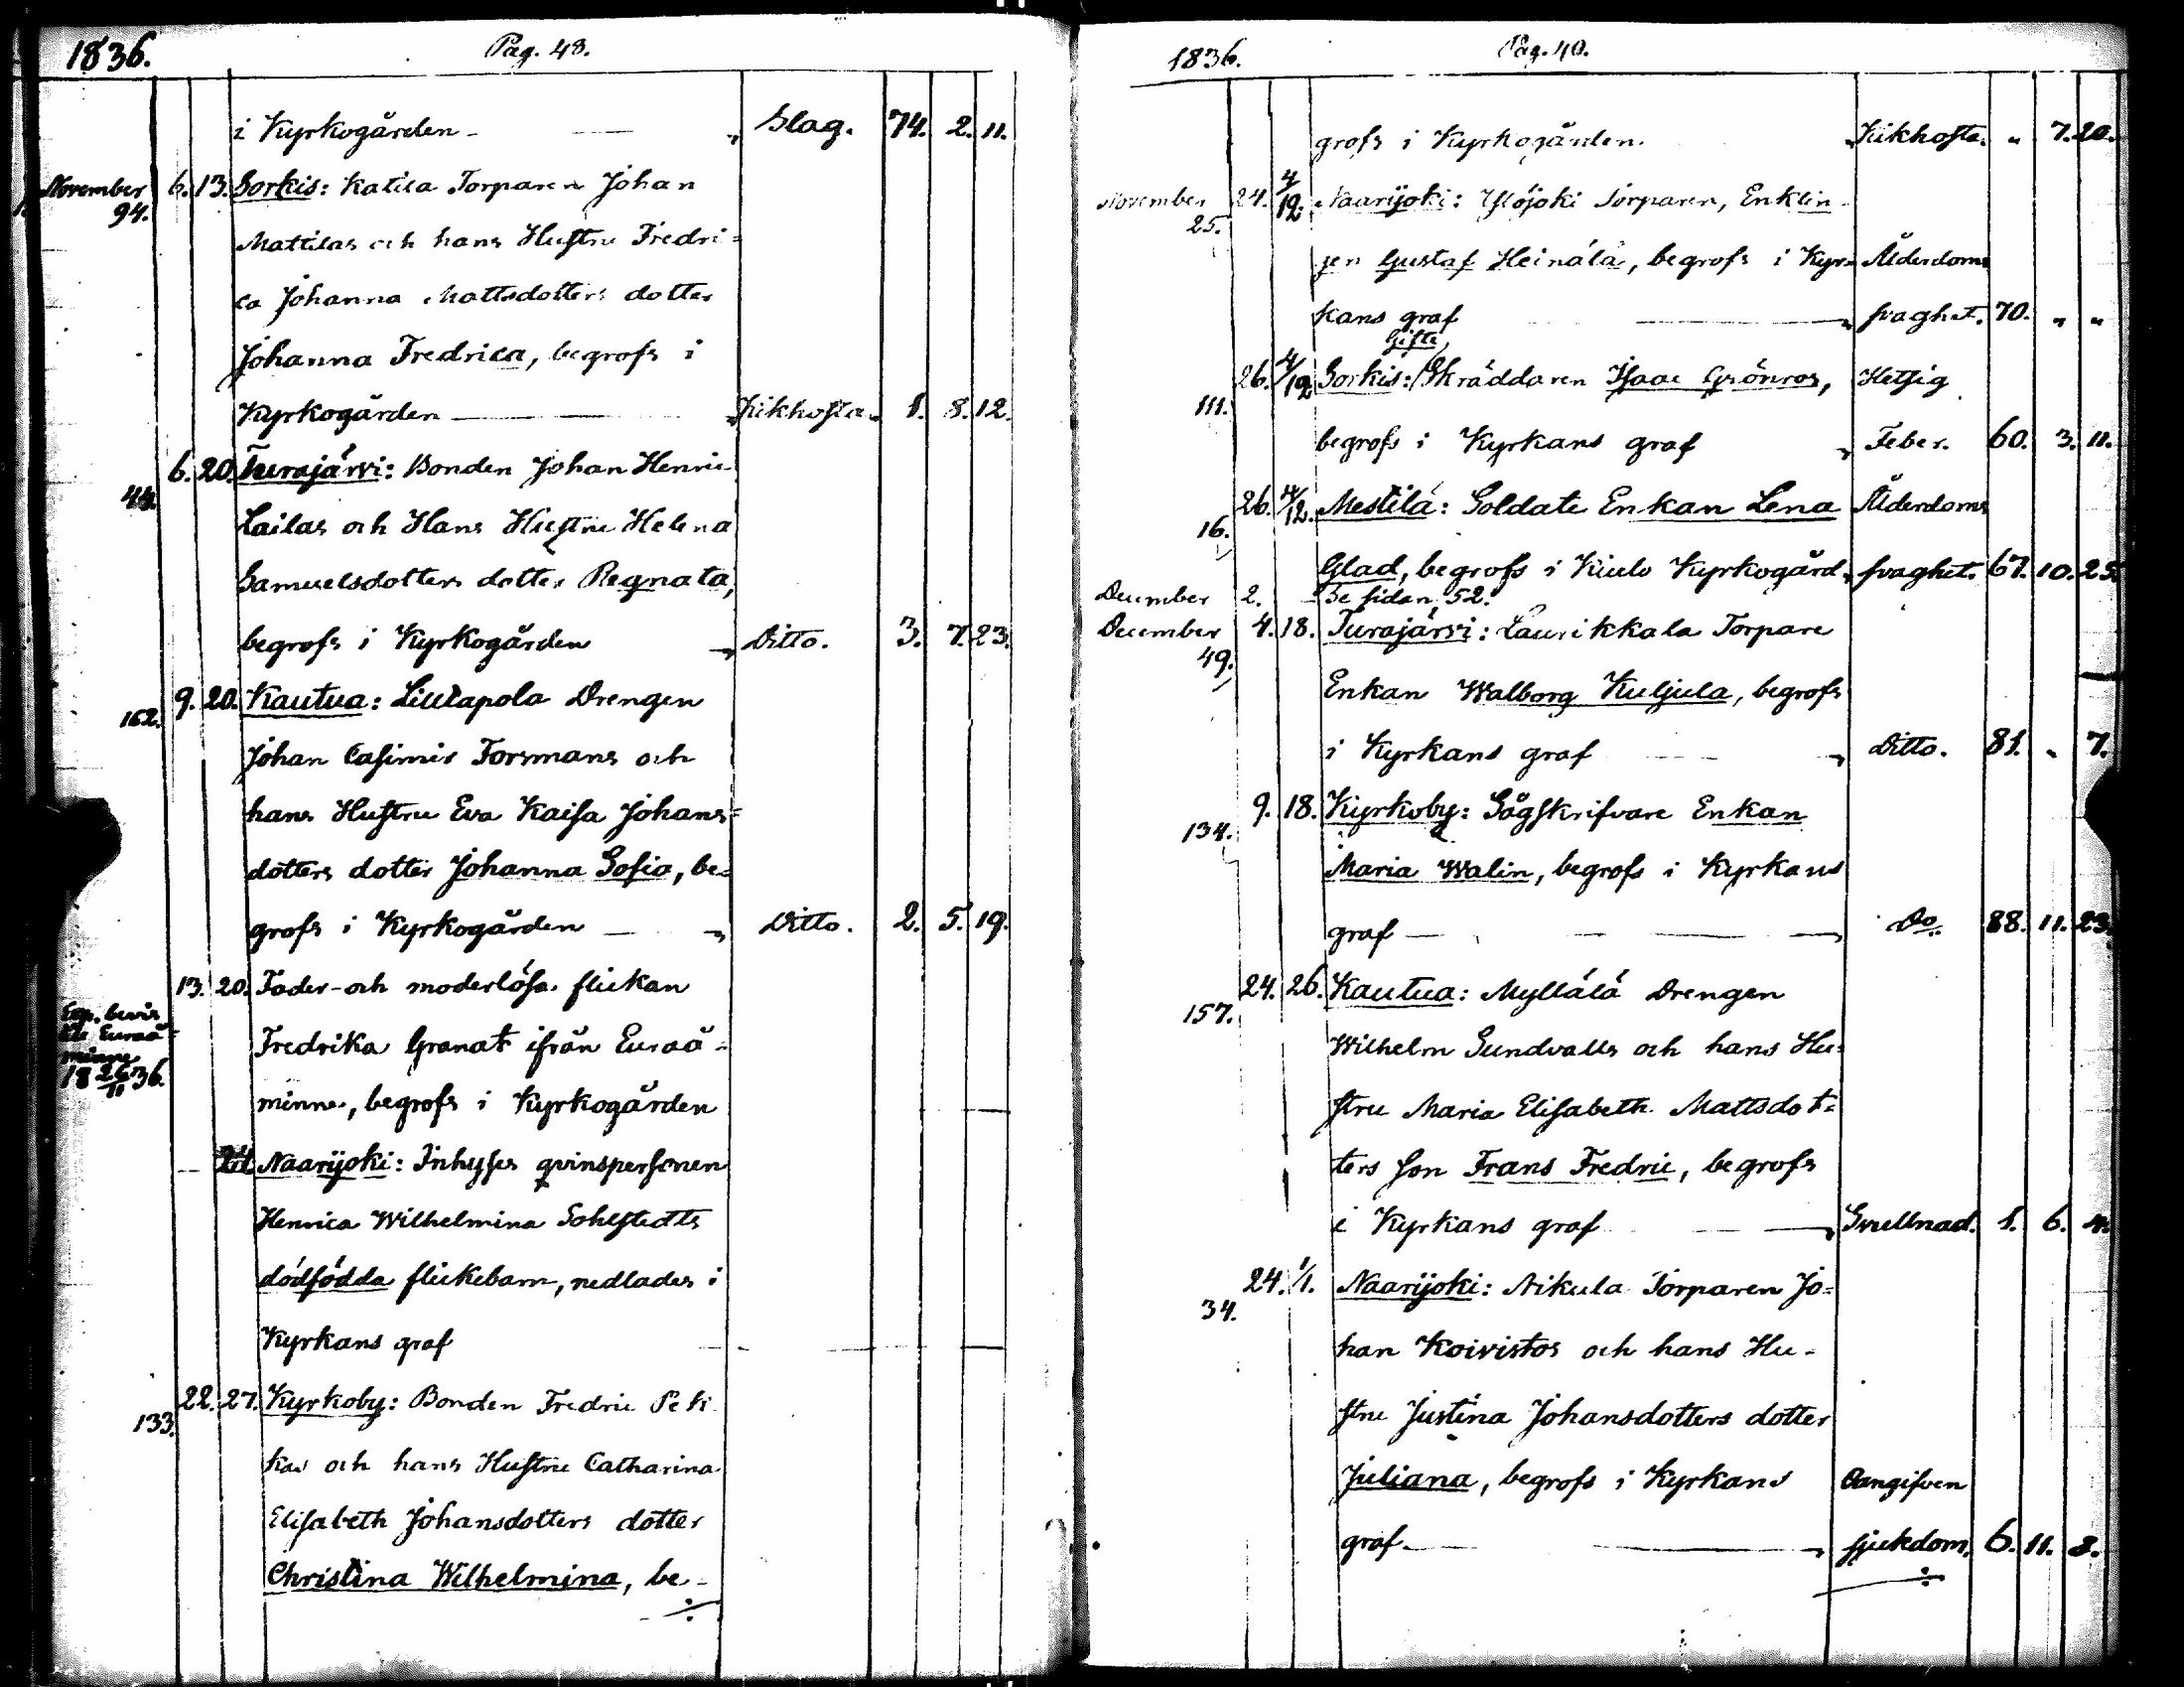 1836. Pag. 48.
i Kyrkogården — Slag. 74. 2. 11.
November 6. 13. Sorkis: Katila Torparen Johan
94. Mattilas och hans Hustru Fredri=
ca Johanna Mattsdotters dotter
Johanna Fredrica, begrofs i
Kyrkogården — Kikhosta. 1. 8. 12.
6. 20. Turajärvi: Bonden Johan Henric
44. Lailas och Hans Hustru Helena
Samuelsdotters dotter Regnata,
begrofs i Kyrkogården Ditto. 3. 7. 23.
9. 20. Kautua: Liulapola Drengen
162. Johan Casimir Forsmans och
hans Hustru Eva Kaisa Johans=
dotters dotter Johanna Sofia, be=
grofs i Kyrkogården — Ditto. 2. 5. 19.
13. 20. Fader- och moderlösa flickan
Exp. bevis
till Euraå=
minne
18 26/11 36.
Fredrika Granat ifrån Euraå=
minne, begrofs i Kyrkogården
24. Naarijoki: Inhyses qvinspersonen
Henrica Wilhelmina Sohlstedts
dödfödda flickebarn, nedlades i
Kyrkans graf
22. 27. Kyrkoby: Bonden Fredric Pek
133. kas och hans Hustru Catharina
Elisabeth Johansdotters dotter
Christina Wilhelmina, be=
1836. Pag. 49.
grofs i Kyrkogården. Kikhosta. " 7. 20.
November 24. 4/12. Naarijoki: Ylöjoki Torparen, Enklin
25. gen Gustaf Heinälä, begrofs i Kyr= Ålderdoms
kans graf — svaghet. 70. " "
Gifte
26. 4/12 Sorkis: Skräddaren Isaac Grönros, Hetsig
111. begrofs i Kyrkans graf Feber. 60. 3. 11.
26. 4/12. Mestilä: Soldate Enkan Lena Ålderdoms
16. Glad, begrofs i Kiulo Kyrkogård, svaghet. 67. 10. 25.
December 2. Se sidan 52.
December 4. 18. Turajärvi: Laurikkala Torpare
49. Enkan Walborg Kuljula, begrofs
i Kyrkans graf Ditto. 81. " 7.
9. 18. Kyrkoby: Sågskrifvare Enkan
134. Maria Walin, begrofs i Kyrkans
graf — Do. 88. 11. 23.
24. 26. Kautua: Myllälä Drengen
157. Wilhelm Sundvalls och hans Hu=
stru Maria Elisabeth Mattsdot=
ters son Frans Fredric, begrofs
i Kyrkans graf — Svullnad. 1. 6. 4.
24. 1/1. Naarijoki: Nikula Torparen Jo=
34. han Koivistos och hans Hu=
stru Justina Johansdotters dotter
Juliana, begrofs i Kyrkans Oangifven
graf — sjukdom. 6. 11. 8.